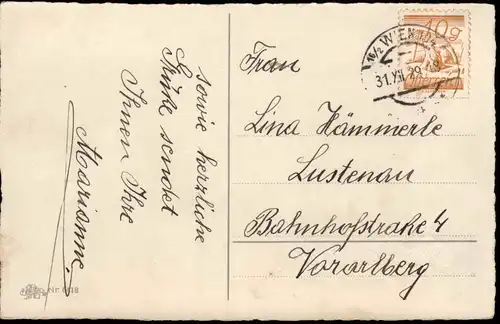 sowie herzliche
Grüße sendet
Ihnen Ihre
Marianne.
Nr. 6
10g
WIEN
31.XII.29
Frau
Lina Hämmerle
Lustenau
Bahnhofstraße 4
Vorarlberg